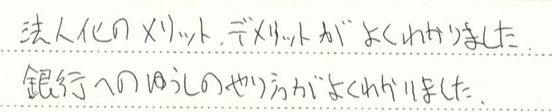 法人化のメリット、デメリットがよくわかりました.
銀行へのゆうしのやり方がよくわかりました.